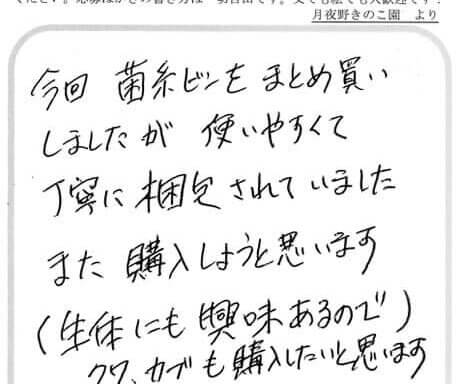 ください。応募はがきの書き方は一切自由です。文でも絵でも大歓迎です！
月夜野きのこ園　より
今回 菌糸ビンを まとめ買い
しましたが 使いやすくて
丁寧に 梱包 されて いました
また 購入しようと思います
(生体にも 興味あるので)
クワ、カブも購入したいと思います